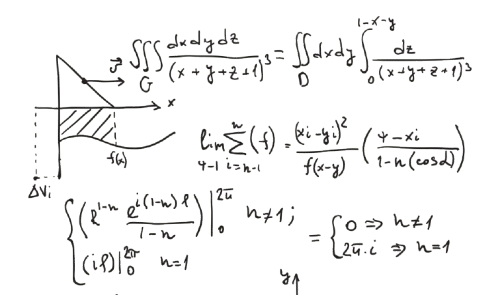 ʋ ∭_G dxdydz/(x+y+z+1)^3 = ∬_D dxdy ∫_0^{1-x-y} dz/(x+y+z+1)^3
x
f(x)
lim_{4-1} ∑_{i=n-1}^{n} (f) = (xi-yi)^2/f(x-y) (4-xi/1-n(cosα))
ΔVi
{ (R^{1-n} e^{i(1-n)φ}/1-n)|_0^{2π} n≠1;
(iφ)|_0^{2π} n=1
= { 0 ⇒ n≠1
2π·i ⇒ n=1
y